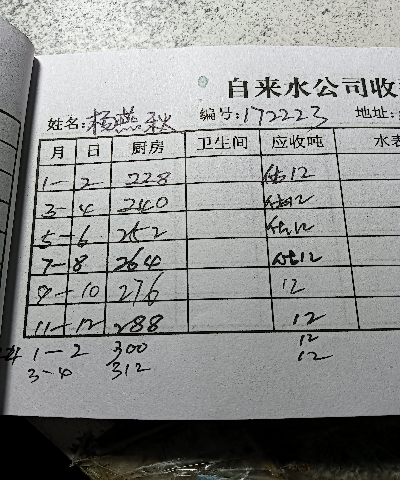 自来水公司收
姓名:杨燕秋 编号:172223 地址:
月 日 厨房 卫生间 应收吨 水表
1-2 228 估12
3-4 240 估12
5-6 252 估12
7-8 264 估12
9-10 276 12
11-12 288 12
12
1-2 300 12
3-4 312